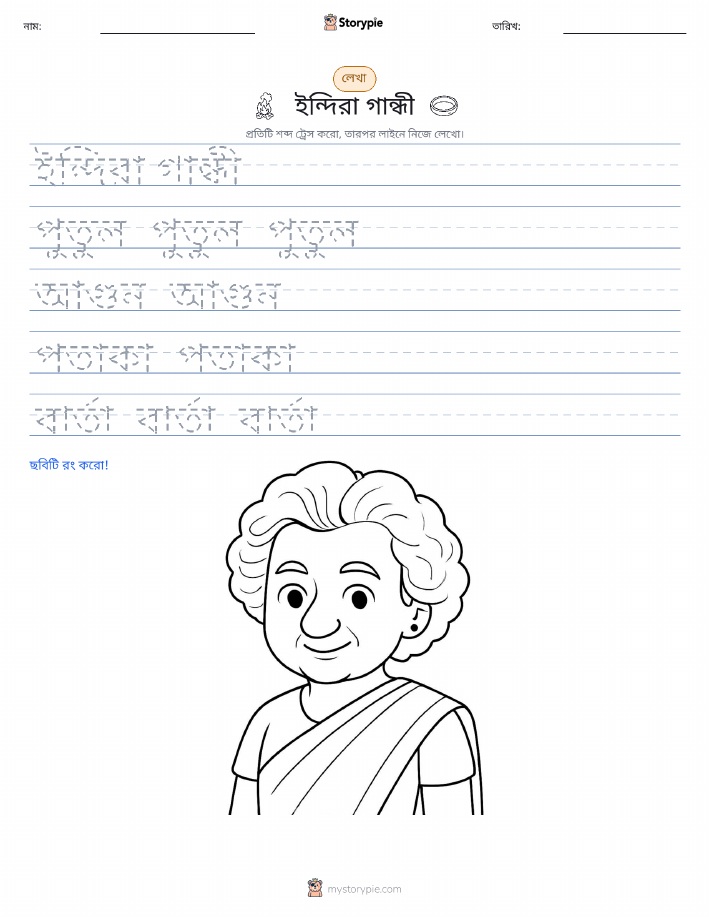 নাম:
Storypie
তারিখ:
লেখা
ইন্দিরা গান্ধী
প্রতিটি শব্দ ট্রেস করো, তারপর লাইনে নিজে লেখো।
ইন্দিরা গান্ধী
পুতুল পুতুল পুতুল
আগুন আগুন
পতাকা পতাকা
বার্তা বার্তা বার্তা
ছবিটি রং করো!
mystorypie.com